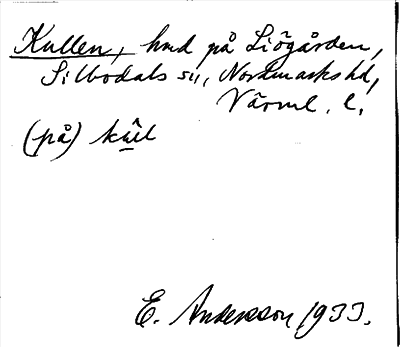 Kullen, hmd på Liögården,
Silbodals sn, Nordmarks hd,
Värml. l.
(på) kul
E. Andersson 1933.